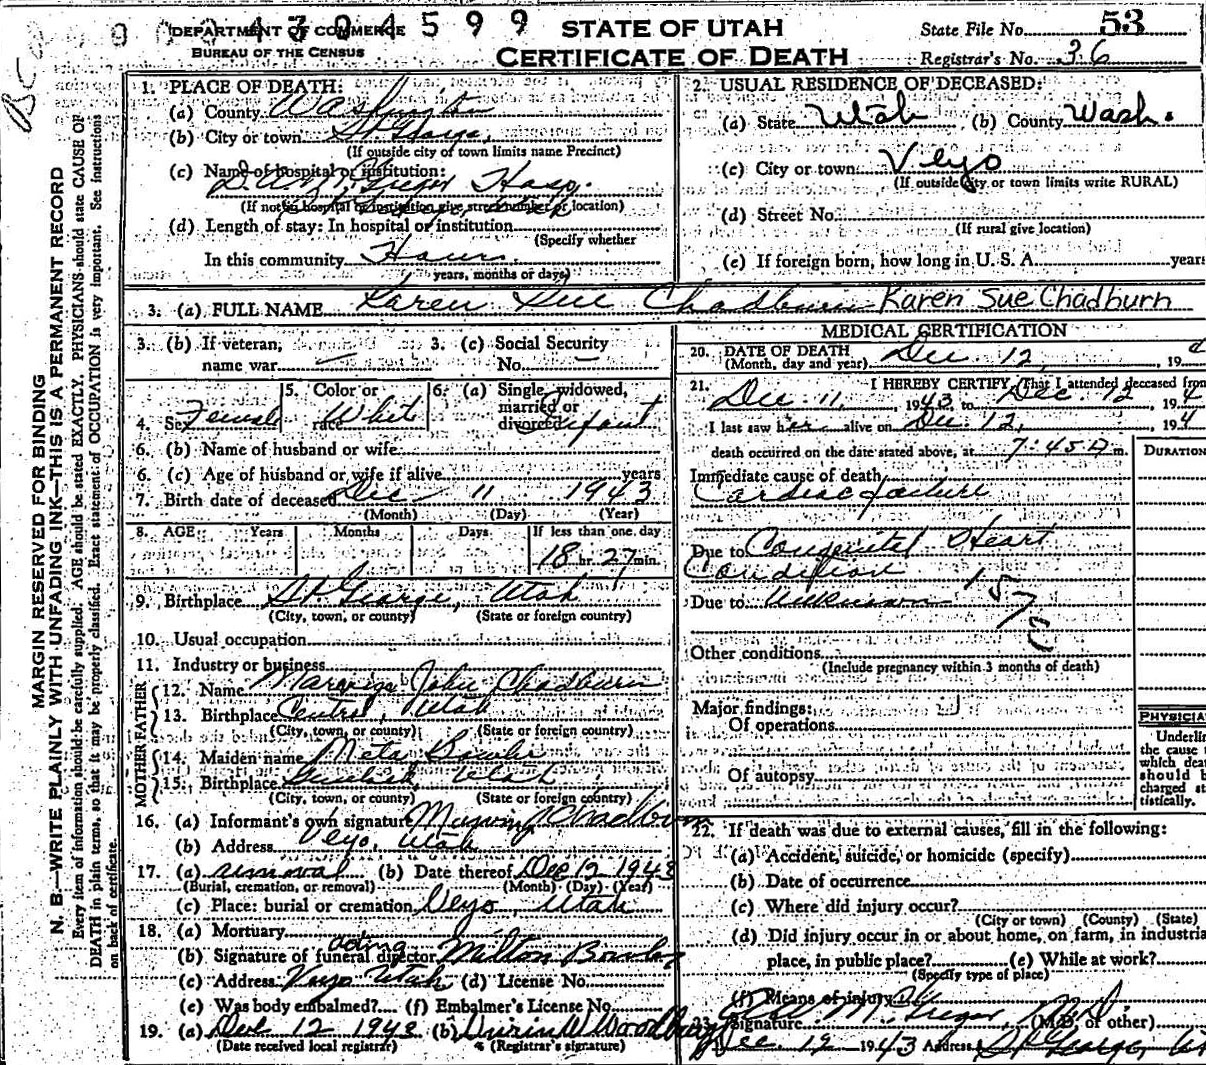 9 0 0 4 3 0 4 5 9 9
BC
DEPARTMENT OF COMMERCE
BUREAU OF THE CENSUS
STATE OF UTAH
CERTIFICATE OF DEATH
State File No. 53
Registrar's No. 36
MARGIN RESERVED FOR BINDING
N. B.—WRITE PLAINLY WITH UNFADING INK—THIS IS A PERMANENT RECORD
Every item of information should be carefully supplied. AGE should be stated EXACTLY. PHYSICIANS should state CAUSE OF
DEATH in plain terms, so that it may be properly classified. Exact statement of OCCUPATION is very important. See instructions
on back of certificate.
1. PLACE OF DEATH:
(a) County Washington
(b) City or town St George,
(If outside city of town limits name Precinct)
(c) Name of hospital or institution:
D. A. McGregor Hosp.
(If not in hospital or institution give street number or location)
(d) Length of stay: In hospital or institution
(Specify whether
In this community Hours.
years, months or days)
2. USUAL RESIDENCE OF DECEASED:
(a) State Utah (b) County Wash.
(c) City or town Veyo
(If outside city or town limits write RURAL)
(d) Street No.
(If rural give location)
(e) If foreign born, how long in U. S. A. years
3. (a) FULL NAME Karen Sue Chadburn Karen Sue Chadburn
3. (b) If veteran, name war —
3. (c) Social Security No. —
4. Sex Female
5. Color or race White
6. (a) Single, widowed, married or divorced Infant
6. (b) Name of husband or wife
6. (c) Age of husband or wife if alive years
7. Birth date of deceased Dec 11 1943
(Month) (Day) (Year)
8. AGE Years Months Days If less than one day
18 hr. 27 min.
9. Birthplace St George, Utah
(City, town, or county) (State or foreign country)
10. Usual occupation
11. Industry or business
FATHER
12. Name John Chadburn
13. Birthplace Central, Utah
(City, town, or county) (State or foreign country)
MOTHER
14. Maiden name Meta Bowler
15. Birthplace Gunlock, Utah
(City, town, or county) (State or foreign country)
16. (a) Informant's own signature Chadburn
(b) Address Veyo, Utah
17. (a) removal (b) Date thereof Dec 12 1943
(Burial, cremation, or removal) (Month) (Day) (Year)
(c) Place: burial or cremation Veyo, Utah
18. (a) Mortuary
acting
(b) Signature of funeral director Milton Bowler
(c) Address Veyo Utah (d) License No.
(e) Was body embalmed? (f) Embalmer's License No.
19. (a) Dec 12 1943 (b) Woodbury
(Date received local registrar) (Registrar's signature)
MEDICAL CERTIFICATION
20. DATE OF DEATH Dec. 12, 19
(Month, day and year)
21. I HEREBY CERTIFY, That I attended deceased from
Dec. 11, 1943 to Dec. 12, 194
I last saw her alive on Dec 12, 194
death occurred on the date stated above, at 7:45 a m.
DURATION
Immediate cause of death
Cardiac failure
Due to Congenital Heart
Condition
Due to Unknown 157
Other conditions
(Include pregnancy within 3 months of death)
Major findings:
Of operations
Of autopsy
PHYSICIA
Underlin
the cause
which dea
should b
charged st
tistically.
22. If death was due to external causes, fill in the following:
(a) Accident, suicide, or homicide (specify)
(b) Date of occurrence
(c) Where did injury occur?
(City or town) (County) (State)
(d) Did injury occur in or about home, on farm, in industrial
place, in public place? (e) While at work?
(Specify type of place)
(f) Means of injury
23. Signature McGregor, M.D. (M.D. or other)
Dec. 12 1943 Address St George, Ut